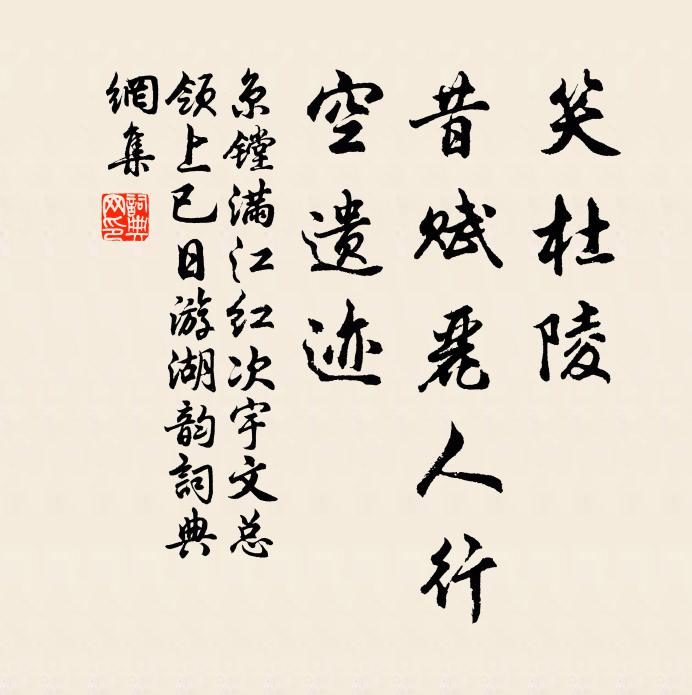 笑杜陵
昔赋麗人行
空遗迹
京镗满江红次宇文总
领上巳日游湖韵詞典
網集
詞典
网印